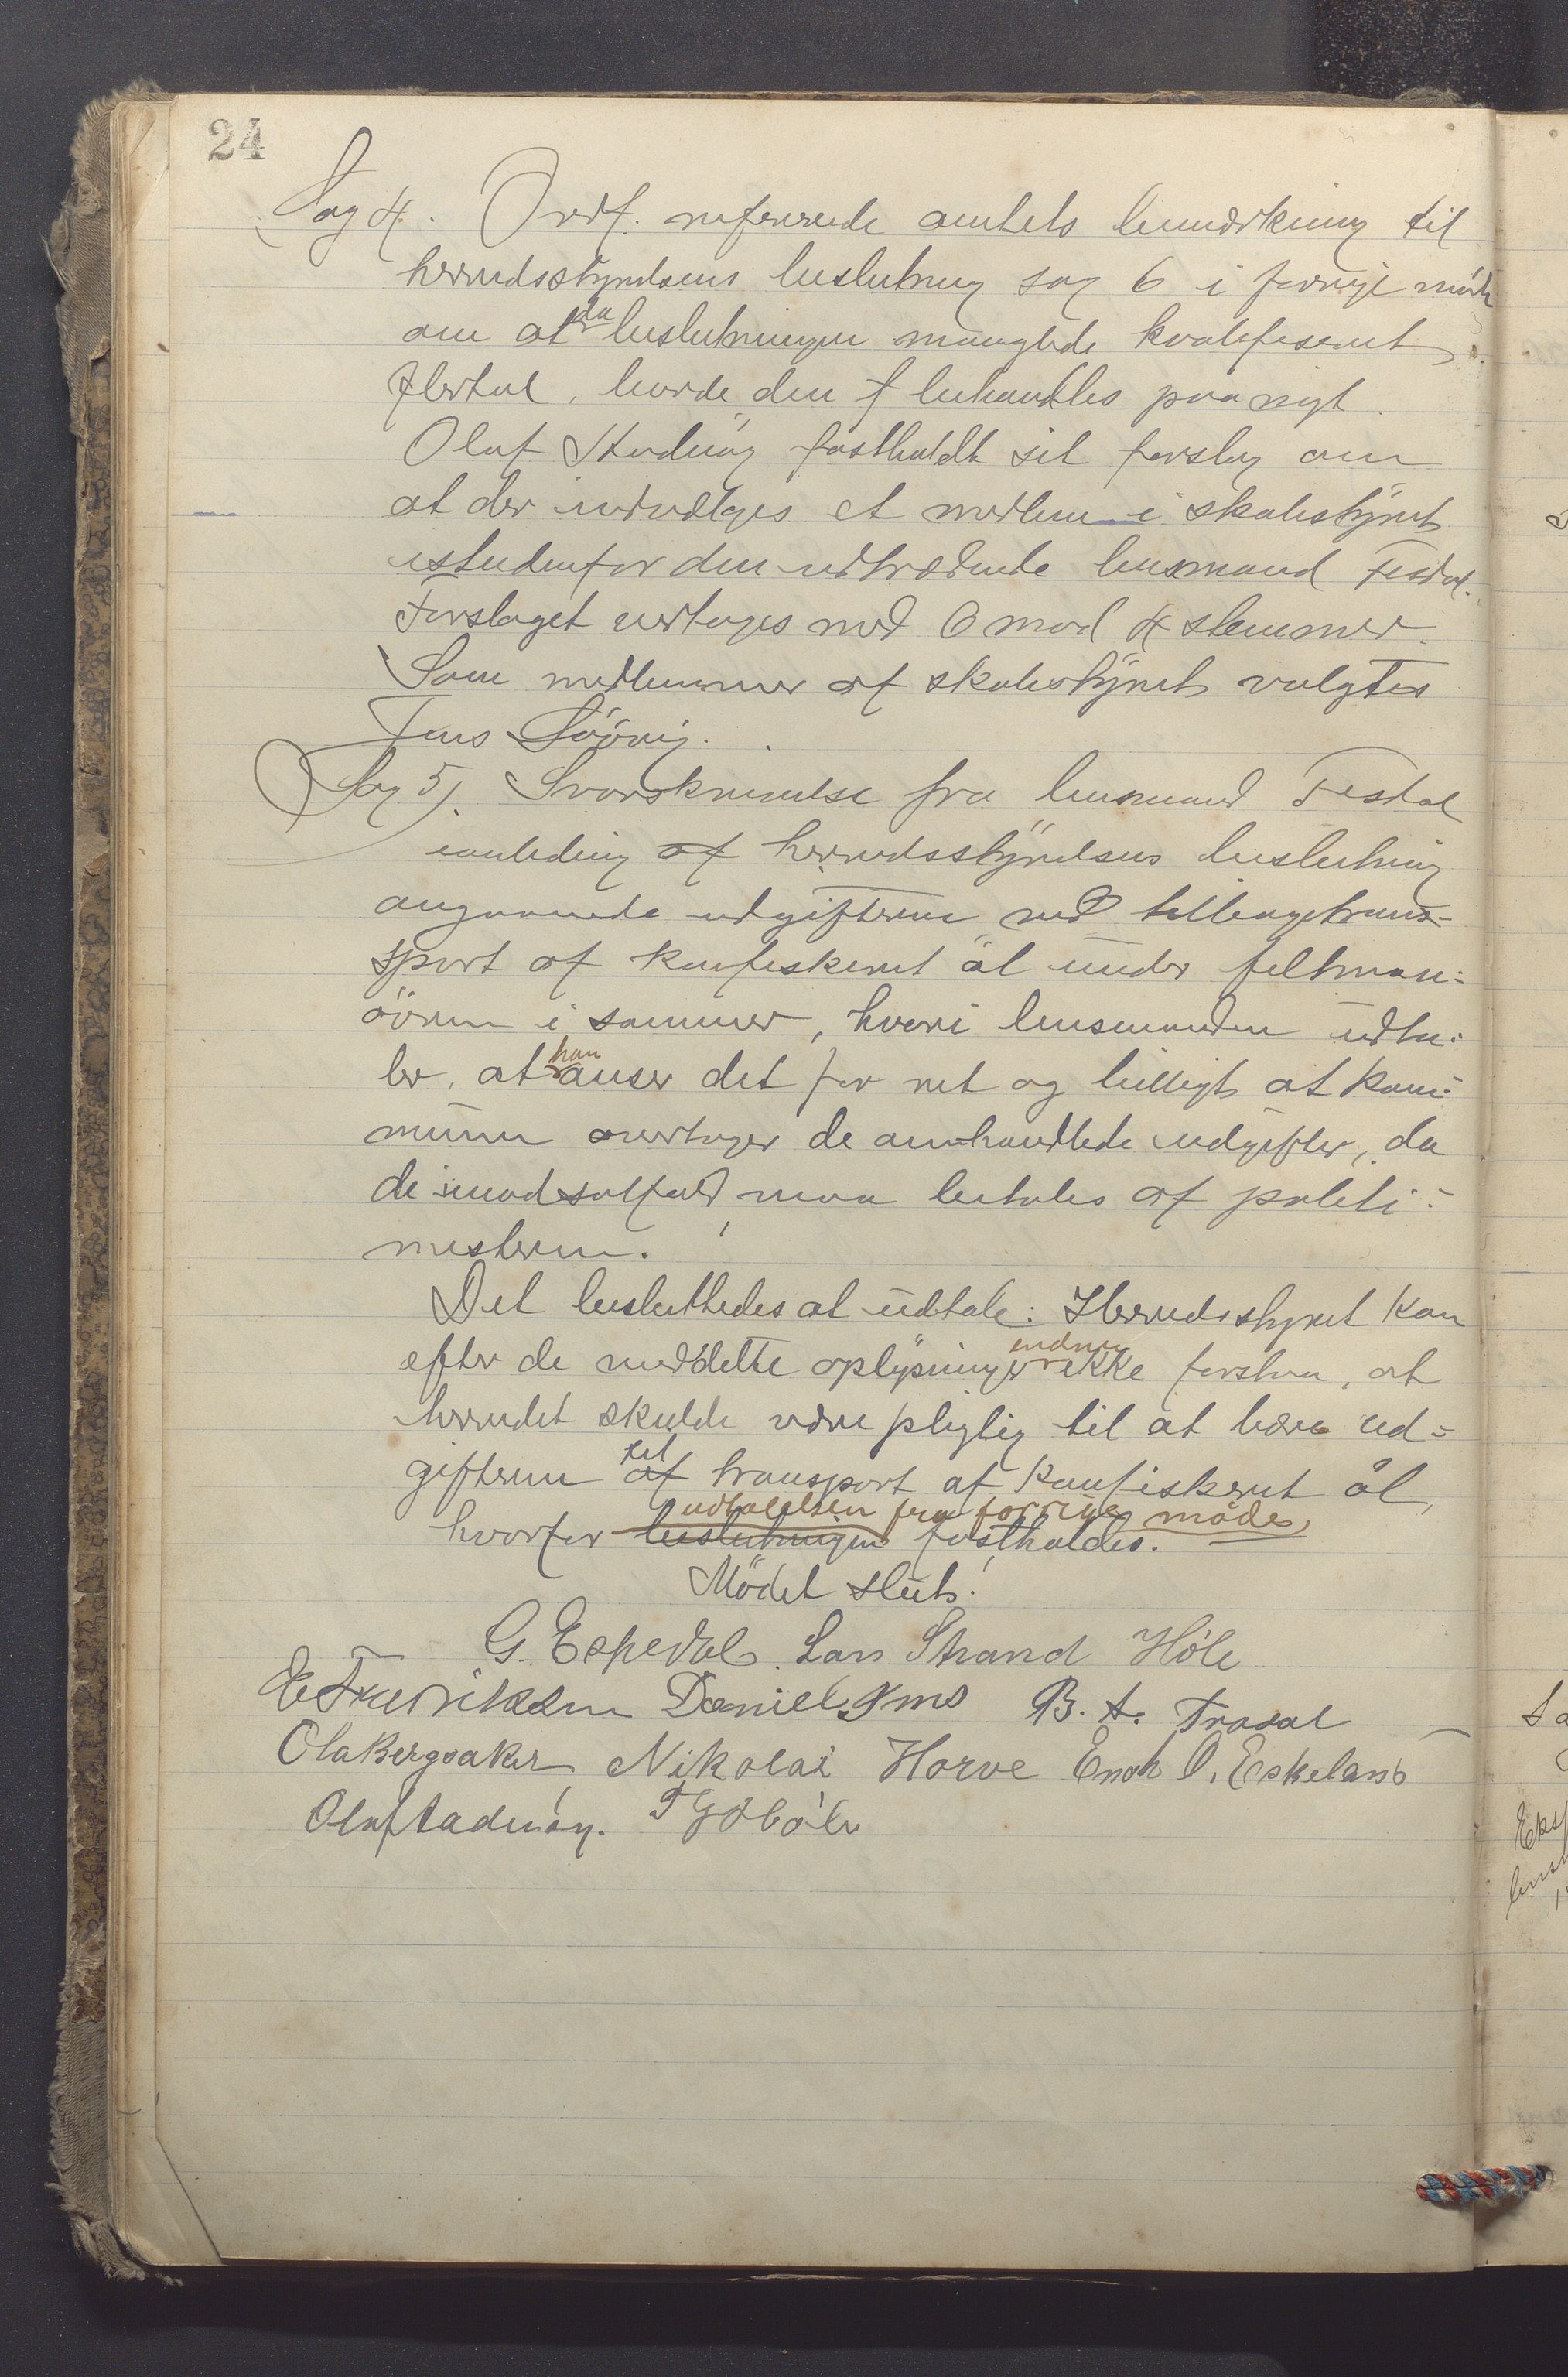 24
Sag 4. Ordf. refererede amtets bemærkning til
herredsstyrelsens beslutning sag 6 i forrige möte
om at da beslutningen manglede kvalifiseret
flertal, burde den behandles paa nyt.
Olaf Stadnöy fastholdt sit forslag om
at der indvælges et medlem i skolestyret
istedenfor den udtrædende lensmand Tesdal.
Forslaget vertoges med 6 mod 4 stemmer.
Som medlemmer af skolestyret valgtes
Jens
Sag 5). Svarskrivelse fra lensmand Tesdal
ianleding af herredsstyrelsens beslutning
angaaende udgifterne ved tilbagetrans-
sport af konfiskeret öl under feltman-
öörene i sommer, hvori lensmanden udta-
ler, at han anser det for ret og billigt at kom-
munen overtager de omhandlede udgifter, da
de i modsatfald maa betales af politi-
mesteren.
Det besluttedes at udtale: Herredsstyret kan
efter de meddelte oplysninger endnu ikke forstaa, at
herredet skulde være pligtig til at bære ud-
gifterne til transport af konfiskeret öl,
udtalelsen fra forrige möde
hvorfor beslutningen fastholdes.
Mödet slut.
G. Espedal. Lars Strand Höle
E Fredriksen Daniel Ims B. A. Frasal
Ola Bergsaker Nikolai Horve Enok O. Eskeland
Olaf Stadnöy.